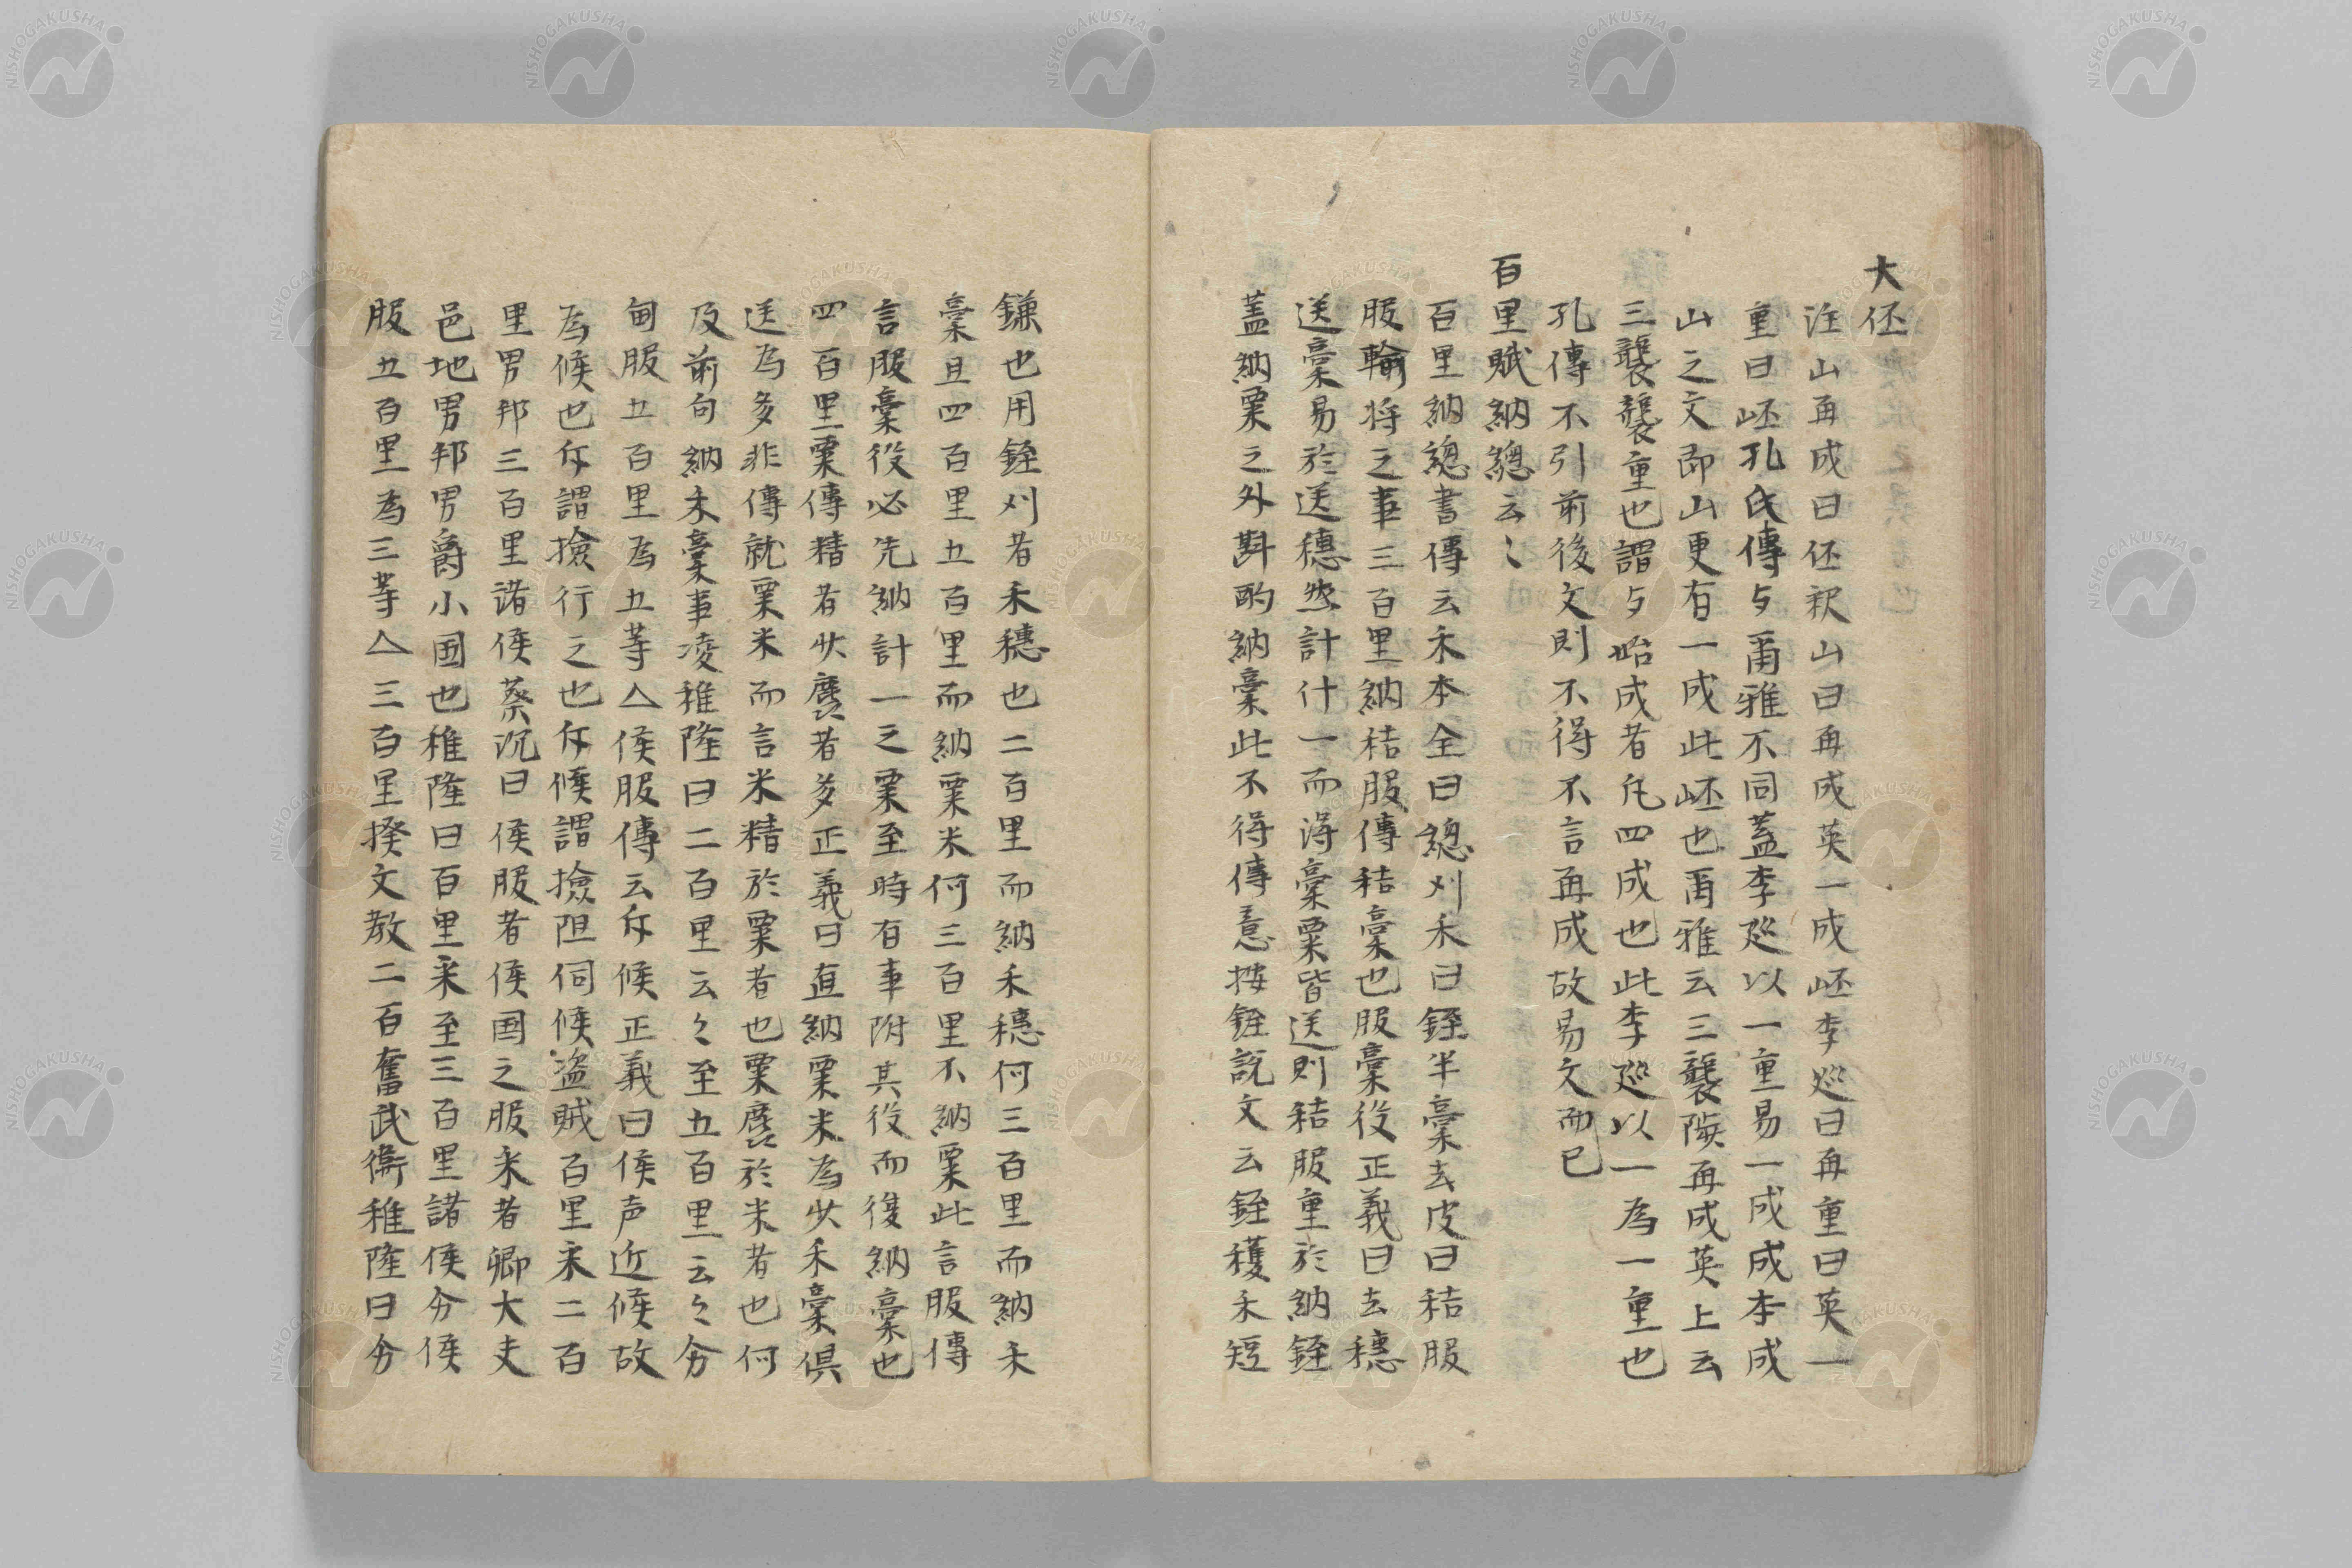 大伾
注山再成曰伾釈山曰再成英一成岯李巡曰再重曰英一
重曰岯孔氏傳与爾雅不同蓋李巡以一重易一成成本成
山之文即山更有一成此岯也爾雅云三襲陟再成英上云
三襲襲重也謂与昭成者凡四成也此李巡以一為一重也
孔傳不引前後文則不得不言再成故易文而已
百里賦納總云〻
百里納總書傳云禾本全曰總刈禾曰銍半稾去皮曰秸服
服輸将之事三百里納秸服傳秸稾也服稾役正義曰去穗
送稾易於送穗然計什一而得稾粟皆送則秸服重於納銍
蓋納粟之外斟酌納稾此不得傳意按銍説文云銍穫禾短
鎌也用銍刈者禾穗也二百里而納禾穏何三百里而納禾
稾且四百里五百里而納粟米何三百里不納粟此言服傳
言服稾役必先納計一之粟至時有事附其役而復納稾也
四百里粟傳精者少麁者多正義曰直納粟米為少禾稾俱
送為多非傳就粟米而言米精於粟者也粟麁於米者也何
及前句納禾稾事凌稚隆曰二百里云々至五百里云々分
甸服五百里為五等△侯服傳云斥候正義曰侯声近候故
為候也斥謂撿行之也斥候謂撿阻伺候盗賊百里采二百
里男邦三百里諸侯蔡沉曰侯服者侯国之服采者卿大夫
邑地男邦男爵小国也稚隆曰百里采至三百里諸侯分侯
服五百里為三等△三百里揆文教二百奮武衛稚隆曰分
NISHOGAKUSHA